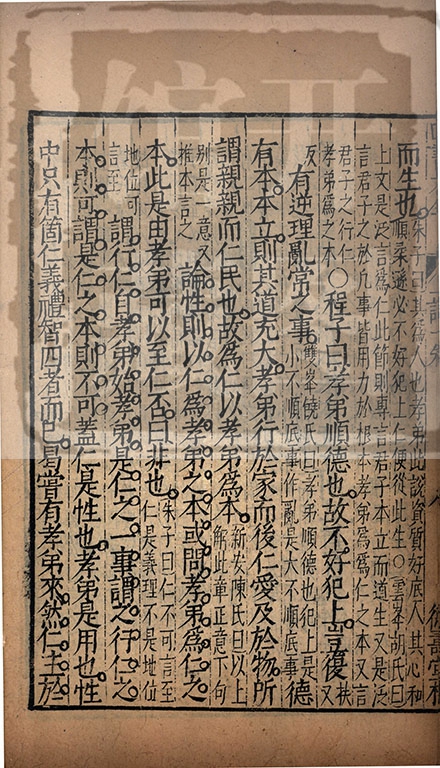 而生也朱子曰其爲人也孝弟此說資質好底人其心和順柔遜必不好犯上仁便從此生○雲峯胡氏曰
上文是泛言爲仁此節則專言君子本立而道生又是泛言君子之於凡事皆用力於根本孝弟爲仁之本又言
君子之行仁孝弟爲之本○程子曰孝弟順德也故不好犯上豈復扶又
反有逆理亂常之事雙峯饒氏曰孝弟順德也犯上是小不順底事作亂是大不順底事德
有本本立則其道充大孝弟行於家而後仁愛及於物所
謂親親而仁民也故爲仁以孝弟爲本新安陳氏曰以上解此章正意下句
別是一意又推本言之論性則以仁爲孝弟之本或問孝弟爲仁之
本此是由孝弟可以至仁否曰非也朱子曰仁不可言至仁是義理不是地位
地位可言至謂行仁自孝弟始孝弟是仁之一事謂之行仁之
本則可謂是仁之本則不可蓋仁是性也孝弟是用也性
中只有箇仁義禮智四者而已曷嘗有孝弟來然仁主於